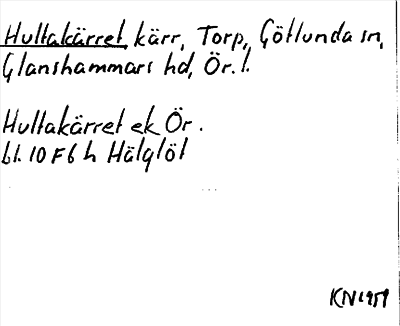 Hultakärret, kärr, Torp, Götlunda sn,
Glanshammars hd, Ör. l.
Hultakärret ek Ör.
bl. 10 F 6 h Hälglöt
KN 1959